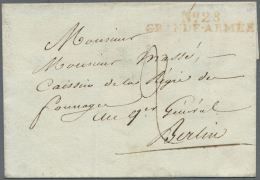 No. 28
GRANDE-ARMÉE
Monsieur
Monsieur Massé,
Caissier de la Régie des
fourrages
Au Qer Général
Berlin